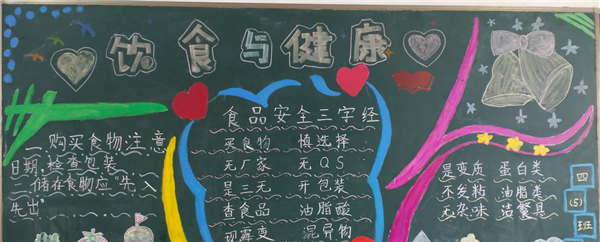 饮食与健康
一.购买食物,注意
日期,检查包装
二.储存食物应“先入
先出”
食品安全三字经
买食物 慎选择
无厂家 无QS
是三无 开包装
查食品 油脂酸
现霉变 混异物
是变质 蛋白类
不发粘 油脂类
无杂味 洁餐具
四
(5)
班